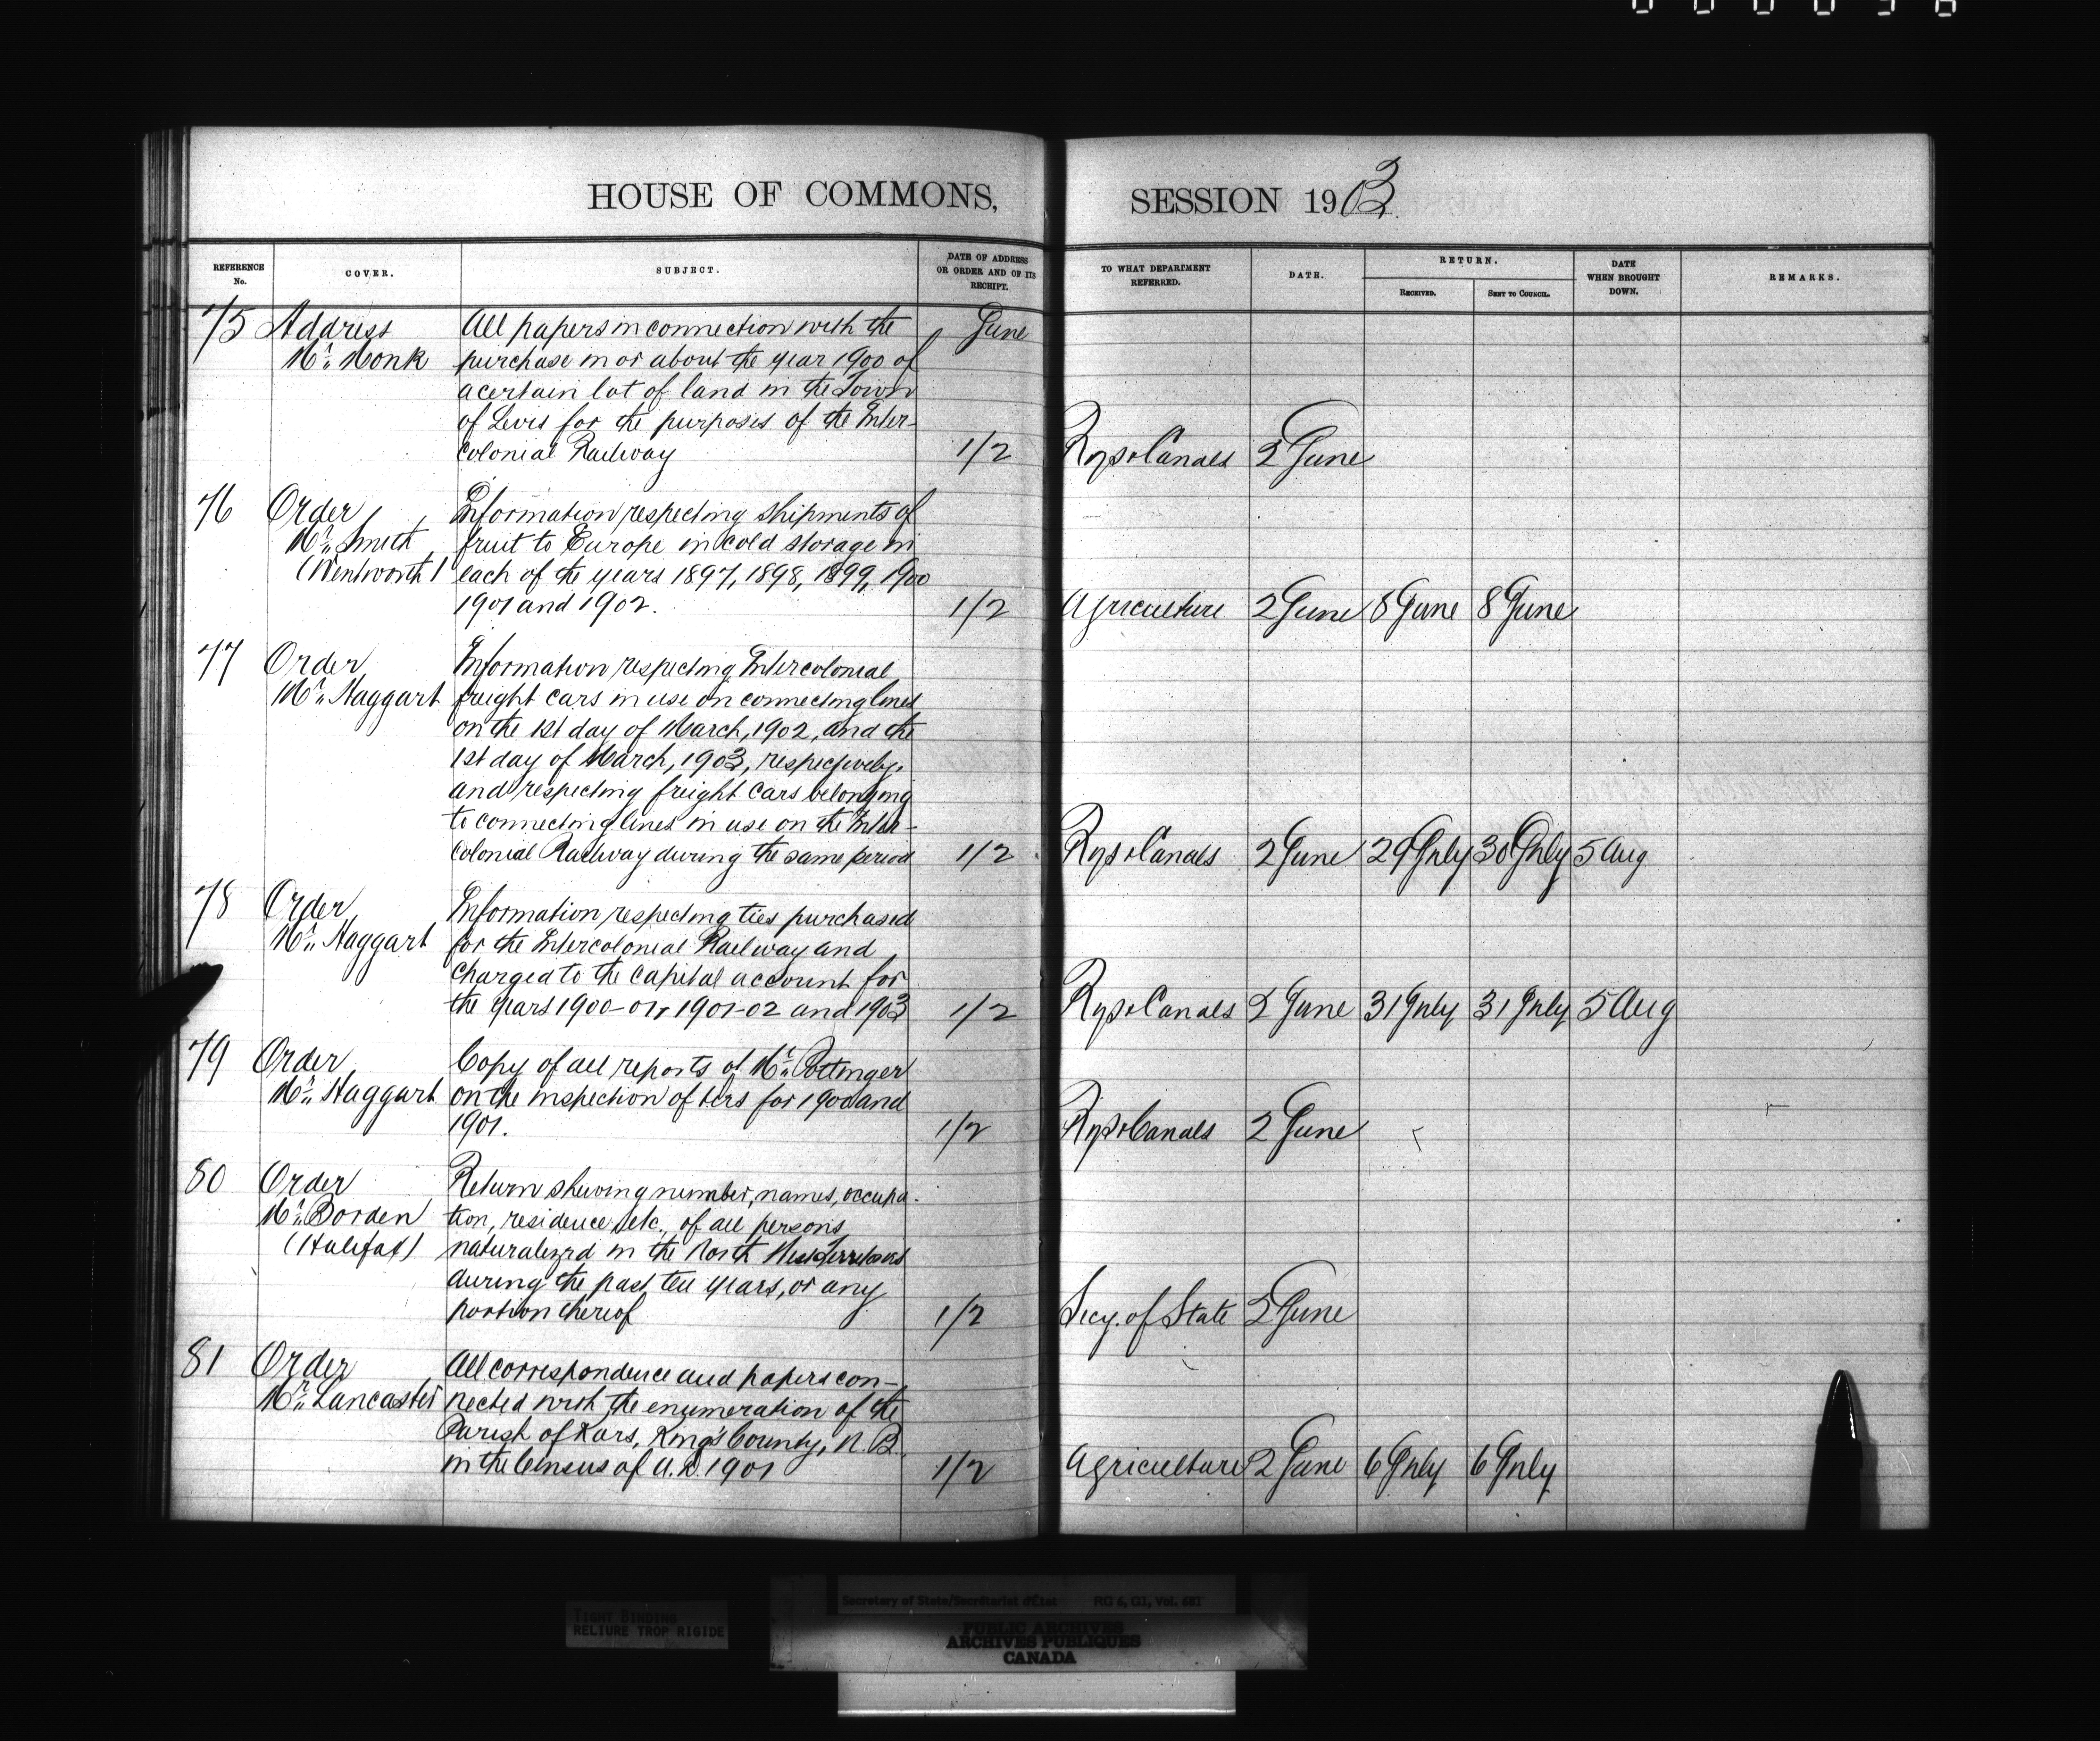 HOUSE OF COMMONS,
SESSION 1903
REFERENCE No.
COVER.
SUBJECT.
DATE OF ADDRESS OR ORDER AND OF ITS RECEIPT.
TO WHAT DEPARTMENT REFERRED.
DATE.
RETURN.
RECEIVED.
SENT TO COUNCIL.
DATE WHEN BROUGHT DOWN.
REMARKS.
75 Address All papers in connection with the June
Mr. Monk purchase in or about the year 1900 of
a certain lot of land in the Town
of Levis for the purposes of the Inter-
colonial Railway 1/2 Rys & Canals 2 June
76 Order Information respecting shipments of
Mr. Smith fruit to Europe in cold storage in
(Wentworth) each of the years 1897, 1898, 1899, 1900
1901 and 1902. 1/2 Agriculture 2 June 8 June 8 June
77 Order Information respecting Intercolonial
Mr. Haggart freight cars in use on connecting lines
on the 1st day of March, 1902, and the
1st day of March, 1903, respectively,
and respecting freight cars belonging
to connecting lines in use on the Inter-
colonial Railway during the same period 1/2 Rys & Canals 2 June 29 July 30 July 5 Aug
78 Order Information respecting ties purchased
Mr. Haggart for the Intercolonial Railway and
charged to the capital account for
the years 1900-01, 1901-02 and 1903 1/2 Rys & Canals 2 June 31 July 31 July 5 Aug
79 Order Copy of all reports of Mr. Pottinger
Mr. Haggart on the inspection of ters for 1900 and
1901. 1/2 Rys & Canals 2 June
80 Order Return shewing number, names, occupa-
Mr. Borden tion, residence, etc., of all persons
(Halifax) naturalized in the North West Territories
during the past ten years, or any
portion thereof 1/2 Secy. of State 2 June
81 Order All correspondence and papers con-
Mr. Lancaster nected with the enumeration of the
Parish of Kars, King's County, N.B.
in the Census of A.D. 1901 1/2 Agriculture 2 June 6 July 6 July
TIGHT BINDING
RELIURE TROP RIGIDE
Secretary of State/Secrétariat d'État RG 6, G1, Vol. 681
PUBLIC ARCHIVES
ARCHIVES PUBLIQUES
CANADA